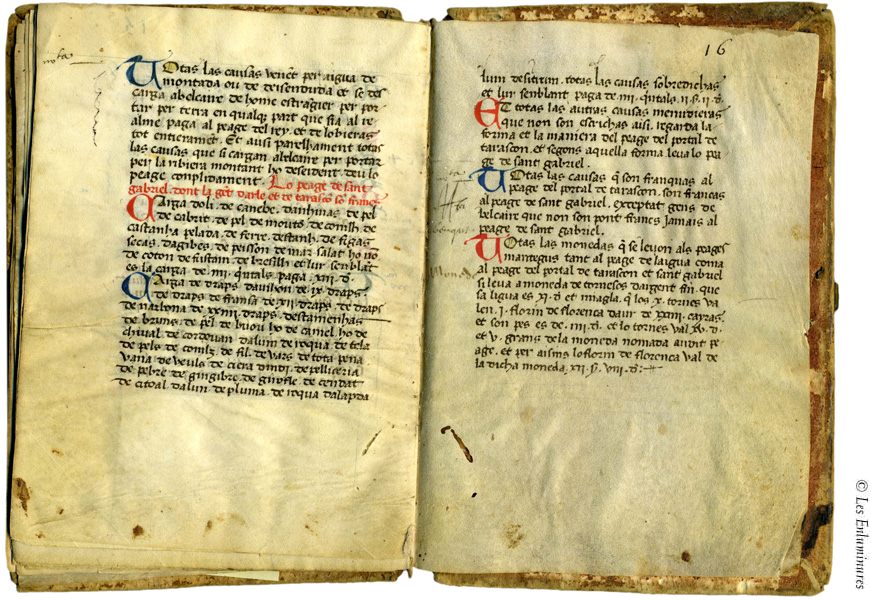 nota
Totas las causas venēt per aigua de
montada ou de deisenduda et se des
carga abelcaire de home estragier per por
tar per terra en qualqȝ part que sia al re
alme paga al peage del rey. et de lobieras
tot entieramēt. Et ausi parelhament totas
las causas que si cargan abelcaire per portar
per la ribiera montant ho desendent. deu lo
peage complidament. Lo peage de sant
gabriel. dont la gēt darle et de tarascō sō francs
Carga doli. de canebe. danhinas. de pel
de cabrit. de pel de moutō. de conilh. de
castanha pelada. de ferre. destanh. de figas
secas. dagibes. de peisson de mar salat ho nō
de coton de fustani. de bresilh et lur senblāt
es la carga de .iiii. quitals paga .xiii. đ.
Carga de draps davilhon de ix. draps.
de draps de fransa de xii. draps. de draps
de narbona de xxiiii. draps. destamenhas
de bruns. de pel de buou ho de camel. ho de
chival. de cordoan. dalum de roqua. de tela
de pels de conilz. de fil. de vars. de tota pena
vana. de veuls. de ciera. dindi. de pelliceria
de pebre. de gingibre. de girofle. de cendat
de citoal. dalum de pluma. de roqua dalapda
16
lum desitium. totas las causas sobredichas
et lur senblant paga de .iiii. quitals. ii. s. ii. đ.
Et totas las autras causas menudieras
que non son escrichas aisi. regarda la
forma et la maniera del peage del portal de
tarascon. et segons aquella forma leva lo pa
ge de sant gabriel.
Totas las causas q̄ son franquas al
peage del portal de tarascon. son francas
al peage de sant gabriel. exceptat gens de
belcaire que non son pont francs jamais al
peage de sant gabriel.
Totas las monedas q̄ se levon als peages
mantegus tant al peage de laigua coma
al peage del portal de tarascon et sant gabriel
si leva a moneda de tornesos dargent fin. que
sa ligua es xi. đ. et miagla. q̄ los x. tornes va
len .i. florin de florenca daur de xxiiii. cayras.
et son pes es de .iii. đ. et lo tornes val xv. đ.
et v. grans de la moneda nomada avdit pe
age. et per aisins lo florin de florenca val de
la dicha moneda. xii. s. viii. đ.
© Les Enluminures